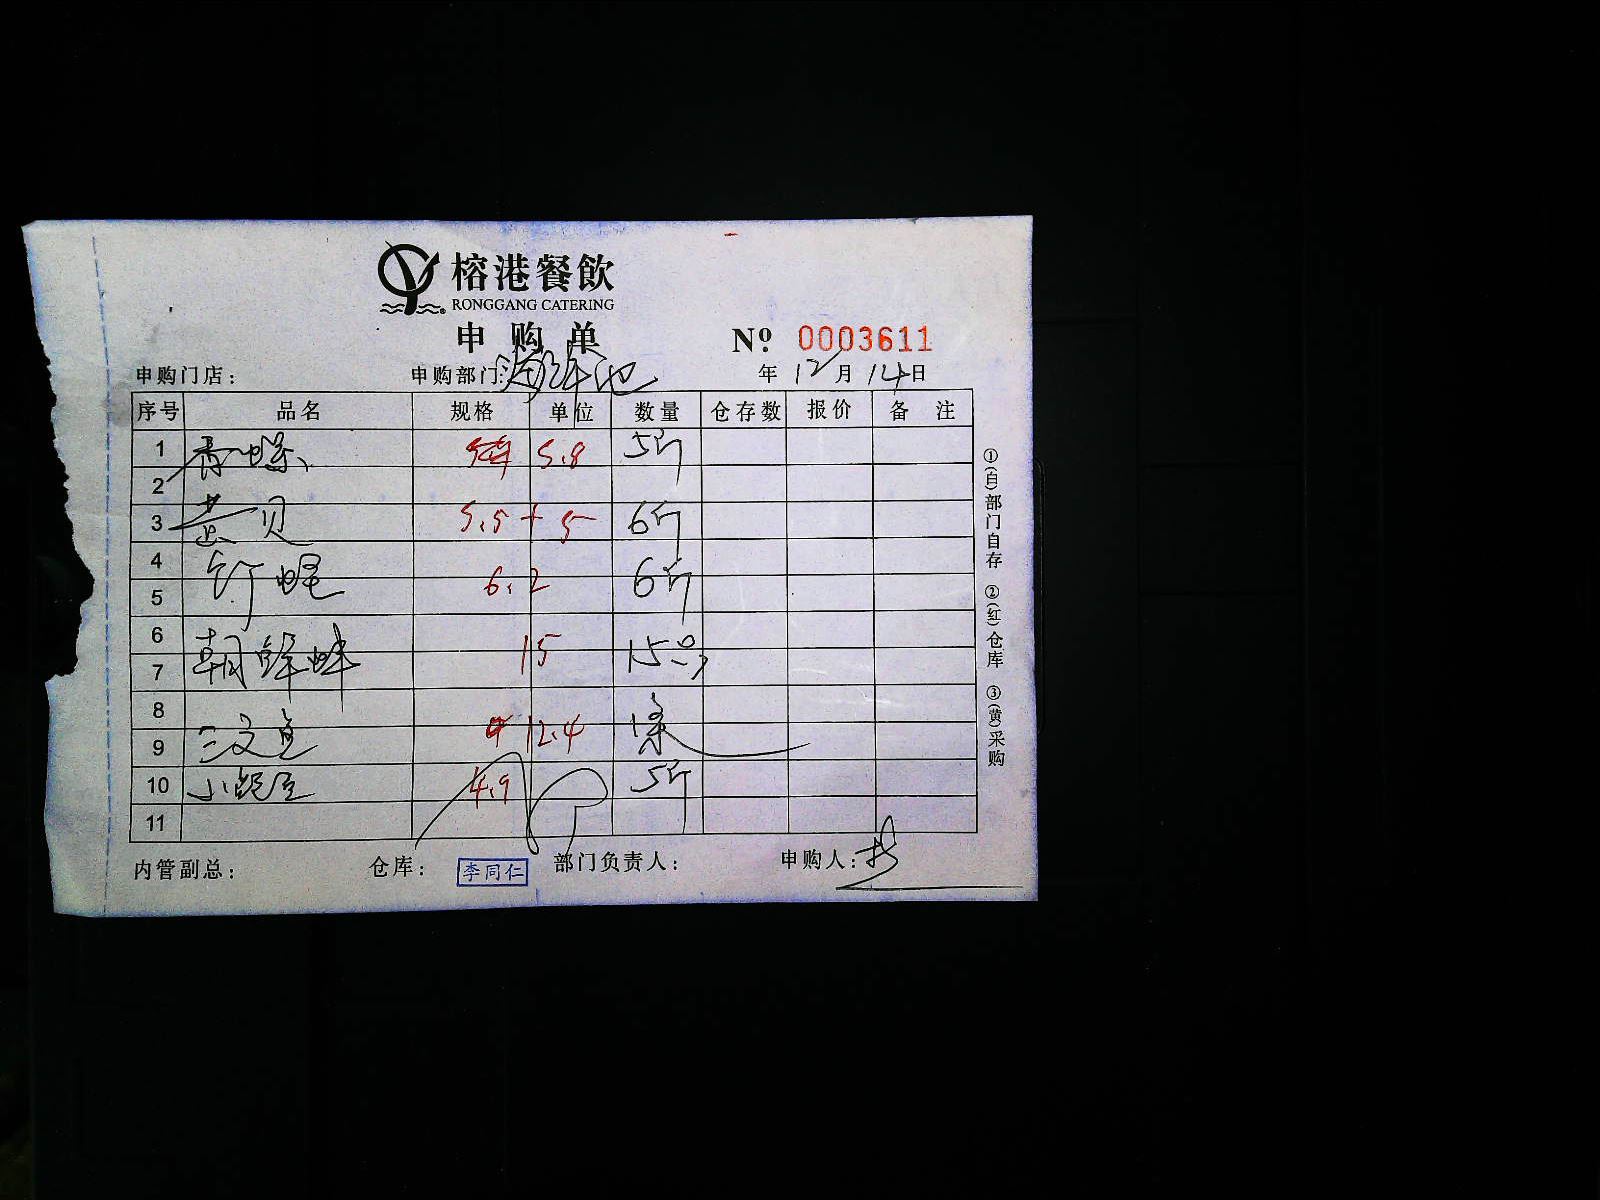 榕港餐飲
RONGGANG CATERING
申购单
№ 0003611
申购门店： 申购部门：海鲜池 年 12 月 14 日
序号 品名 规格 单位 数量 仓存数 报价 备注
1 香螺 5.8 5斤
2
3 黄贝 5.5 + 5 6斤
4
5 钉螺 6.2 6斤
6
7 朝鲜蚌 15 15只
8
9 三文鱼 12.4 1条
10 小鲍鱼 4.9 5斤
11
内管副总： 仓库： 李同仁 部门负责人： 申购人：
①(白)部门自存 ②(红)仓库 ③(黄)采购